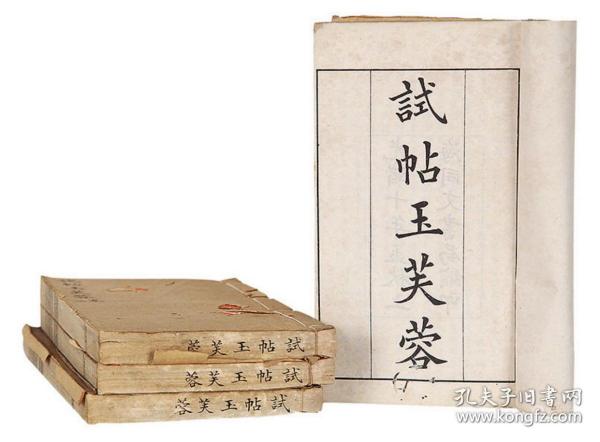 試帖玉芙蓉
試帖玉芙蓉
試帖玉芙蓉
試帖玉芙蓉
孔夫子旧书网
www.kongfz.com